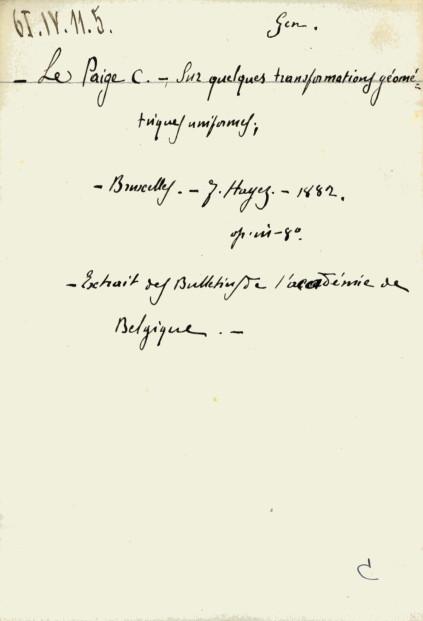 61.IV.11.5.
Gen.
- Le Paige C. - Sur quelques transformations géomé=
triques uniformes;
- Bruxelles. - F. Hayez. - 1882.
op. in-8°.
- Extrait des Bulletins de l'académie de
Belgique. -
C